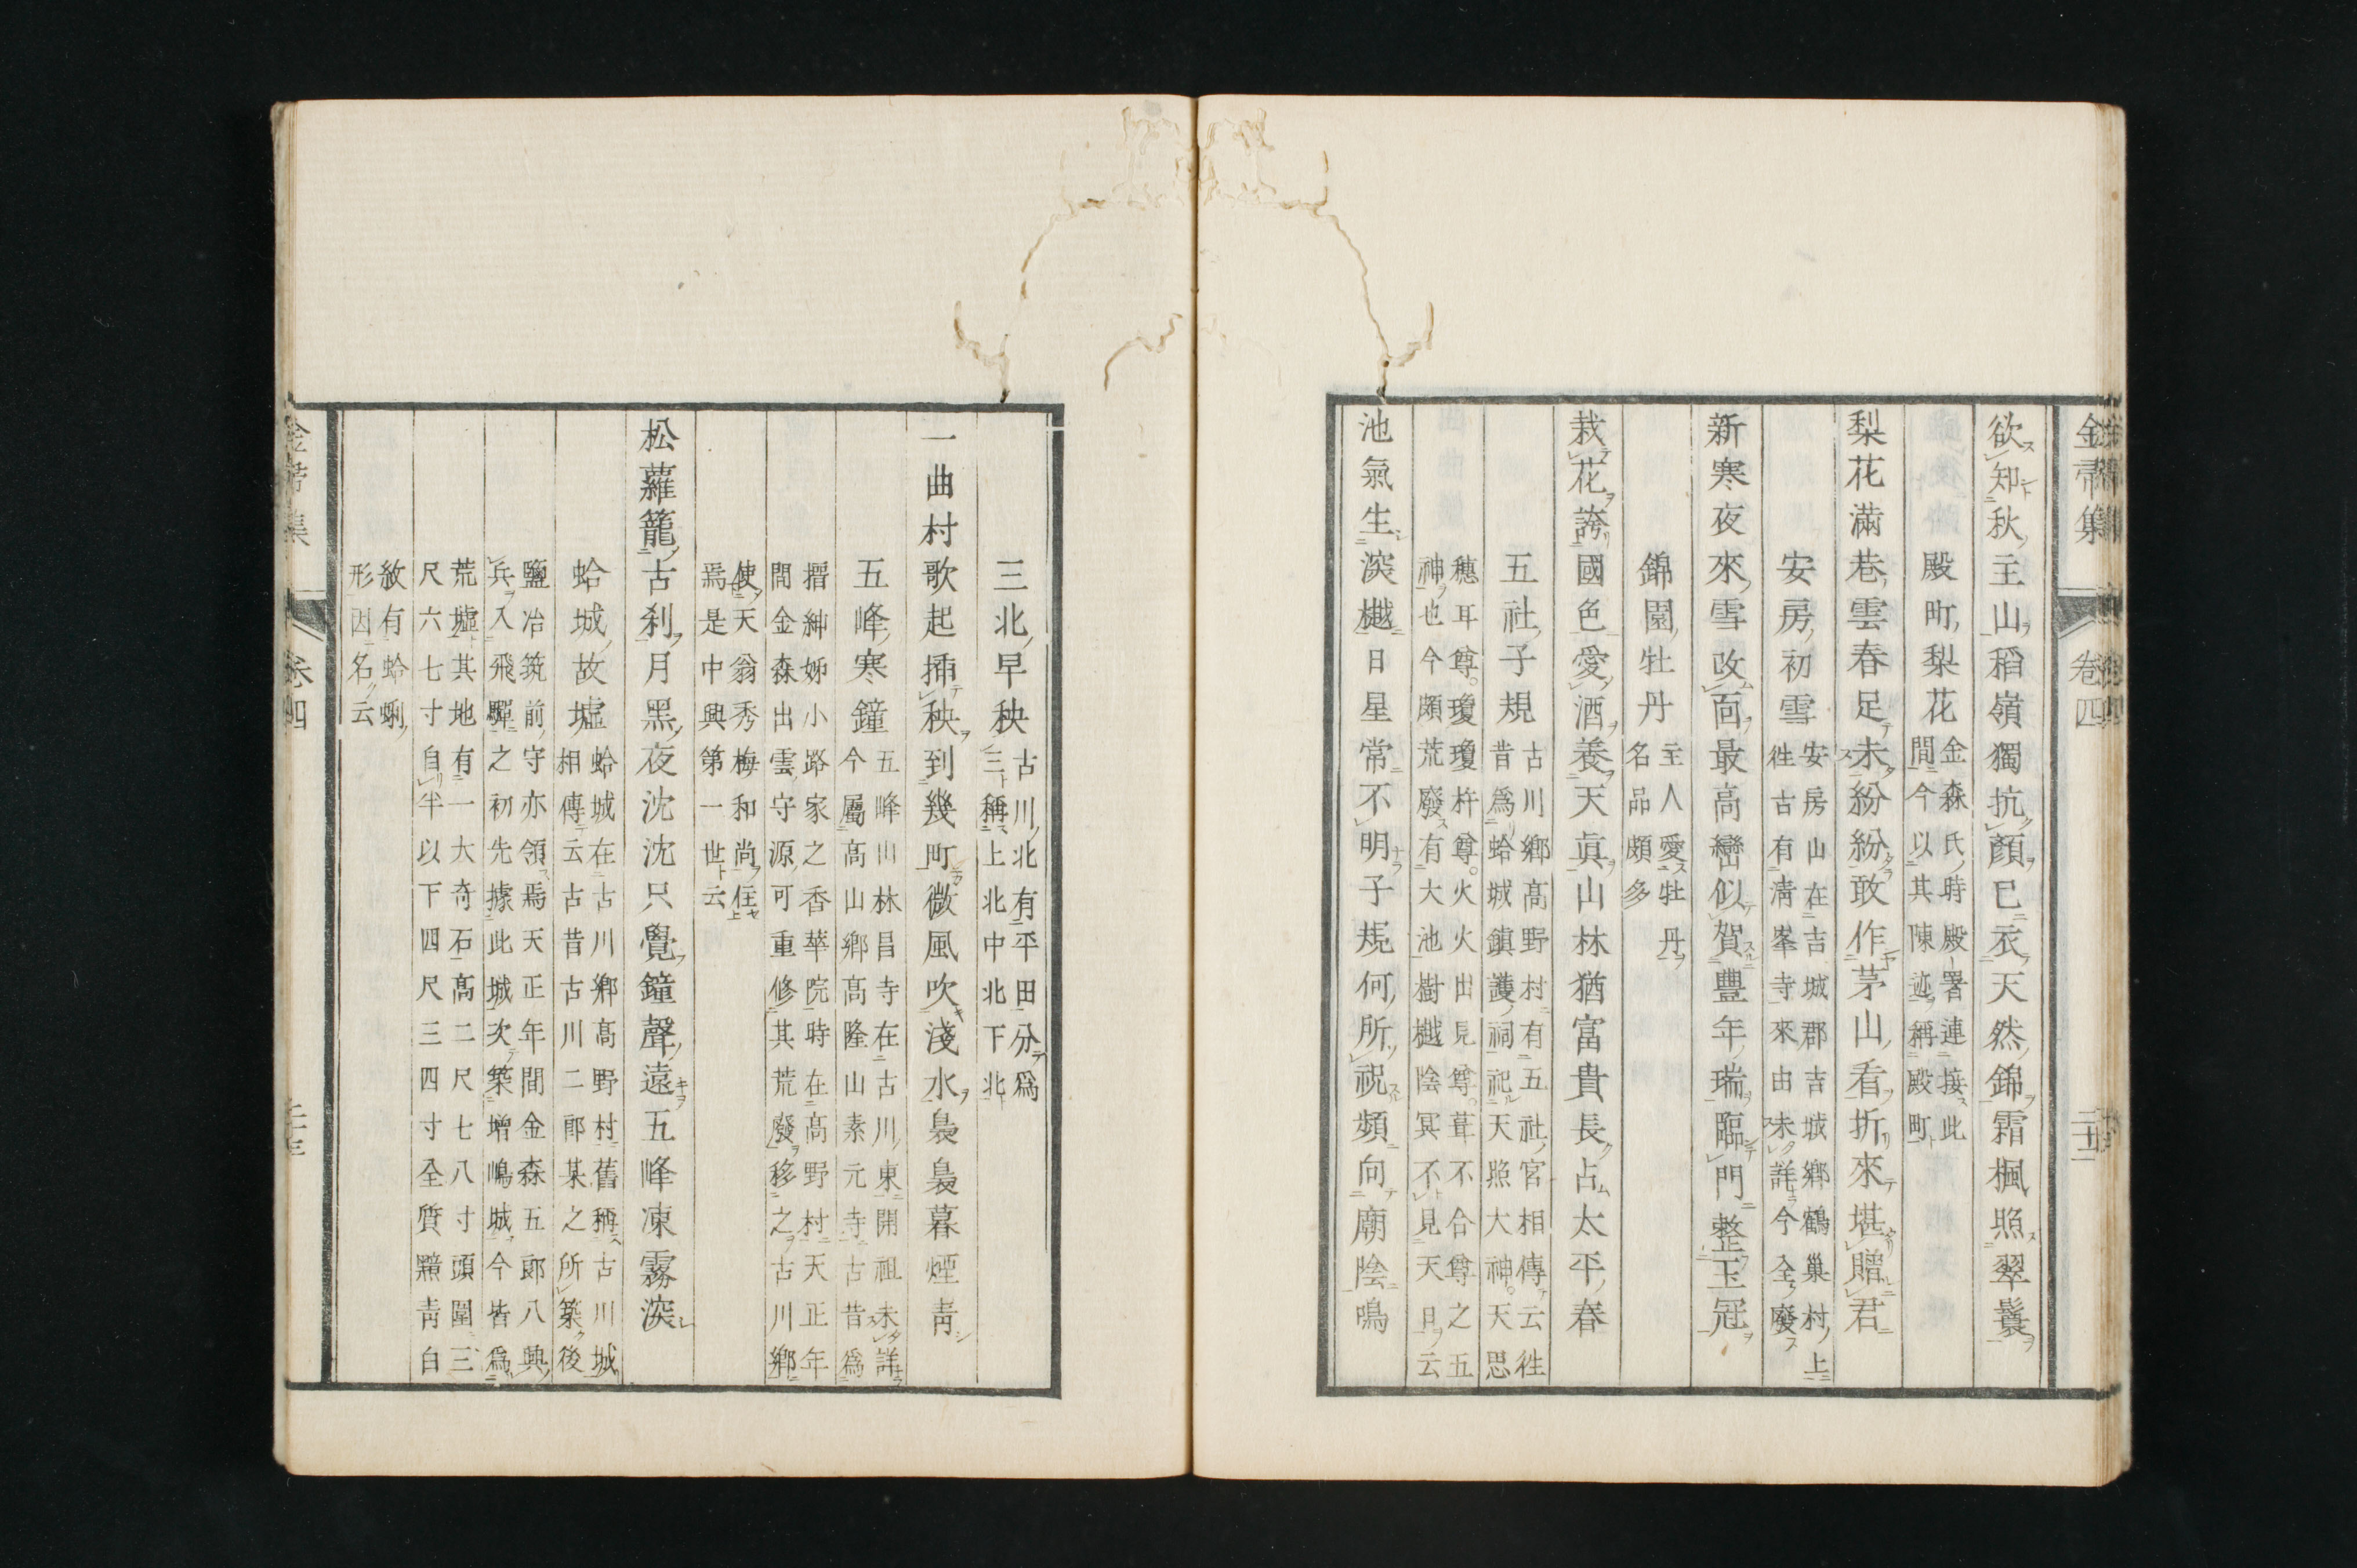 金帚集 卷四
欲知秋主山稻嶺獨抗顏已衣天然錦霜楓照翠鬟
殿町梨花
金森氏時殿署連接此
間今以其陳迹稱殿町
梨花滿巷雲春足未紛紛敢作茅山看折來堪贈君
安房初雪
安房山在吉城郡吉城鄉鶴巢村上
往古有淸峯寺來由未詳今全廢
新寒夜來雪改面最高巒似賀豐年瑞臨門整玉冠
錦園牡丹
主人愛牡丹
名品頗多
栽花誇國色愛酒養天眞山林猶富貴長占太平春
五社子規
古川鄉髙野村有五社官相傳云往
昔爲蛤城鎮護祠祀天照大神天思
穗耳尊瓊瓊杵尊火火出見尊葺不合尊之五
神也今頗荒廢有大池樹樾陰冥不見天日云
池氣生深樾日星常不明子規何所祝頻向廟陰鳴
三北早秧
古川北有平田分爲
三稱上北中北下北
一曲村歌起揷秧到幾町微風吹淺水裊裊暮煙靑
五峰寒鐘
五峰山林昌寺在古川東開祖未詳
今屬髙山鄉髙隆山素元寺古昔爲
搢紳姊小路家之香華院時在髙野村天正年
間金森出雲守源可重修其荒廢移之古川鄉
使天翁秀梅和尚住
焉是中興第一世云
松蘿籠古刹月黑夜沈沈只覺鐘聲遠五峰凍霧深
蛤城故墟
蛤城在古川鄉髙野村舊稱古川城
相傳云古昔古川二郎某之所築後
鹽冶筑前守亦領焉天正年間金森五郎八興
兵入飛驒之初先據此城次築增嶋城今皆爲
荒墟其地有一大奇石髙二尺七八寸頭圍三
尺六七寸自半以下四尺三四寸全質黯靑白
紋有蛤蜊
形因名云
金帚集 卷四